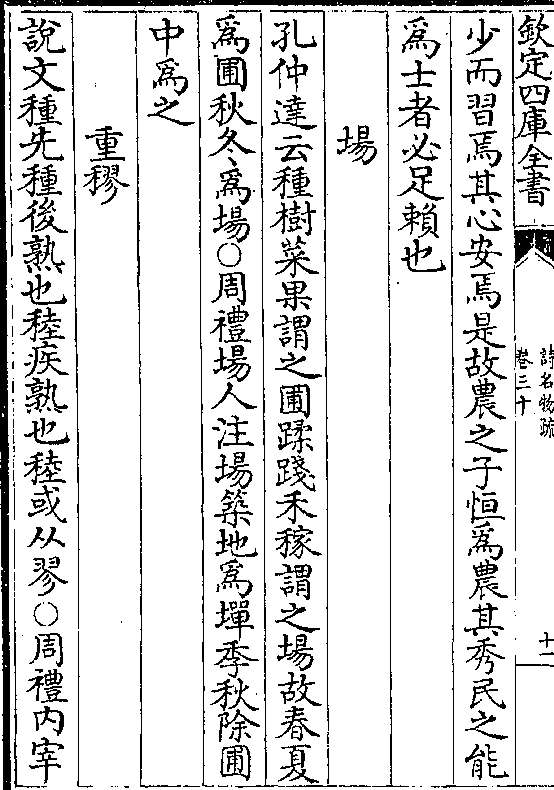 欽定四庫全書
詩名物疏
卷三十
十一
少而習焉其心安焉是故農之子恒爲農其秀民之能
爲士者必足賴也
場
孔仲達云種樹菜果謂之圃蹂踐禾稼謂之場故春夏
爲圃秋冬爲場○周禮場人注場築地爲墠季秋除圃
中爲之
重穋
說文種先種後熟也稑疾熟也稑或从翏○周禮内宰